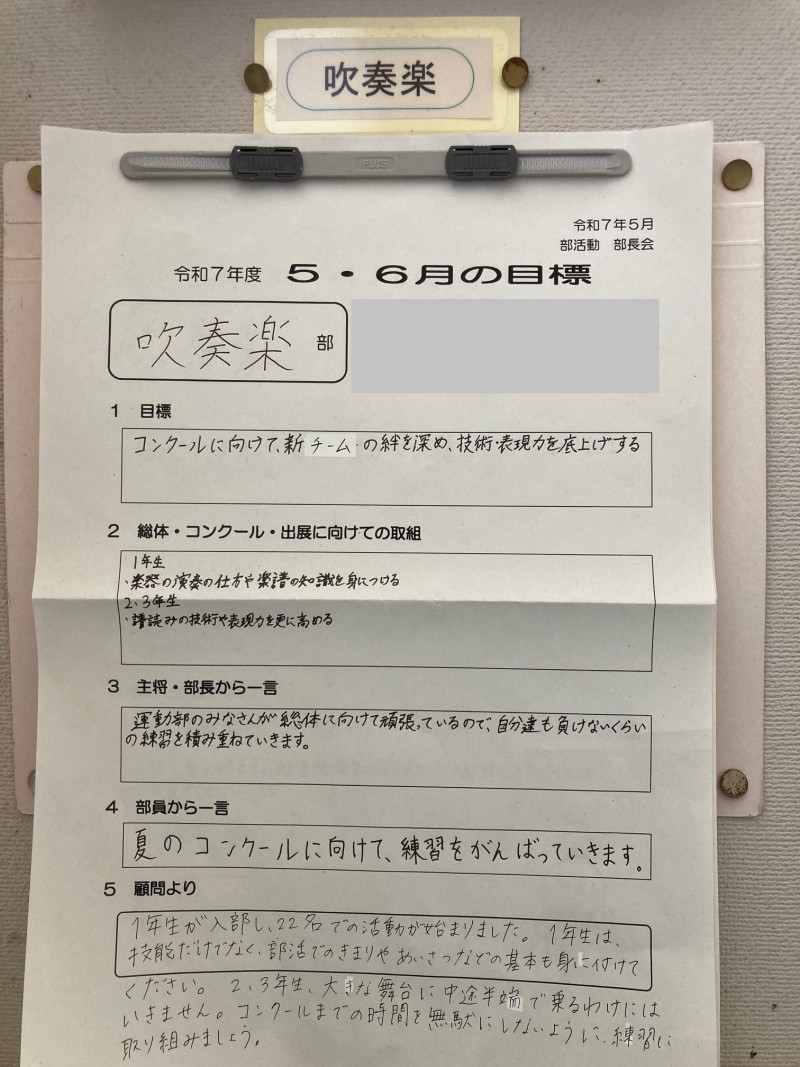 吹奏楽
PLUS
令和7年5月
部活動 部長会
令和7年度 5・6月の目標
吹奏楽 部
1 目標
コンクールに向けて、新チームの絆を深め、技術・表現力を底上げする
2 総体・コンクール・出展に向けての取組
1年生
・楽器の演奏の仕方や楽譜の知識を身につける
2、3年生
・譜読みの技術や表現力を更に高める
3 主将・部長から一言
運動部のみなさんが総体に向けて頑張っているので、自分達も負けないくらい
の練習を積み重ねていきます。
4 部員から一言
夏のコンクールに向けて、練習をがんばっていきます。
5 顧問より
1年生が入部し、22名での活動が始まりました。1年生は、
技能だけでなく、部活でのきまりやあいさつなどの基本も身に付けて
ください。2、3年生、大きな舞台に中途半端で乗るわけには
いきません。コンクールまでの時間を無駄にしないように、練習に
取り組みましょう。